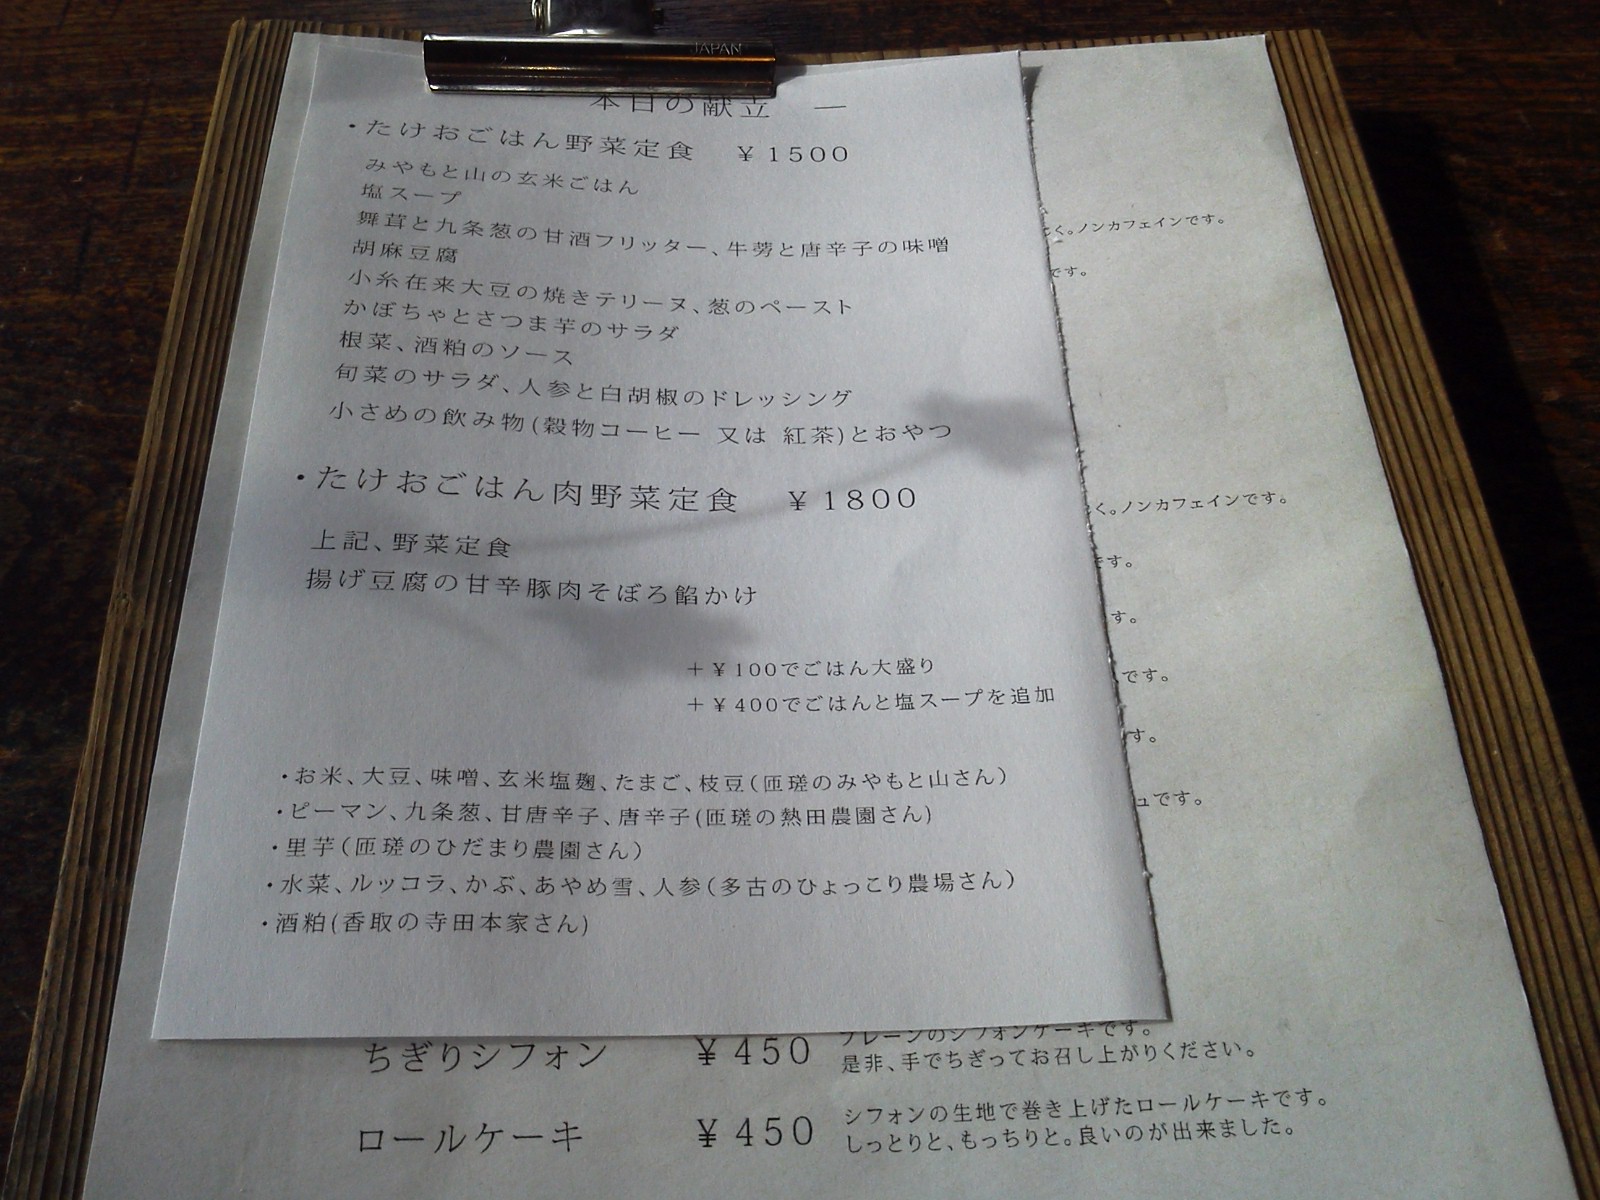 JAPAN
本日の献立 ―
・たけおごはん野菜定食 ¥1500
みやもと山の玄米ごはん
塩スープ
舞茸と九条葱の甘酒フリッター、牛蒡と唐辛子の味噌
胡麻豆腐
小糸在来大豆の焼きテリーヌ、葱のペースト
かぼちゃとさつま芋のサラダ
根菜、酒粕のソース
旬菜のサラダ、人参と白胡椒のドレッシング
小さめの飲み物(穀物コーヒー 又は 紅茶)とおやつ
・たけおごはん肉野菜定食 ¥1800
上記、野菜定食
揚げ豆腐の甘辛豚肉そぼろ餡かけ
+¥100でごはん大盛り
+¥400でごはんと塩スープを追加
・お米、大豆、味噌、玄米塩麹、たまご、枝豆(匝瑳のみやもと山さん)
・ピーマン、九条葱、甘唐辛子、唐辛子(匝瑳の熱田農園さん)
・里芋(匝瑳のひだまり農園さん)
・水菜、ルッコラ、かぶ、あやめ雪、人参(多古のひょっこり農場さん)
・酒粕(香取の寺田本家さん)
く。ノンカフェインです。
です。
く。ノンカフェインです。
です。
す。
です。
す。
ュです。
ちぎりシフォン ¥450 プレーンのシフォンケーキです。
是非、手でちぎってお召し上がりください。
ロールケーキ ¥450 シフォンの生地で巻き上げたロールケーキです。
しっとりと、もっちりと。良いのが出来ました。